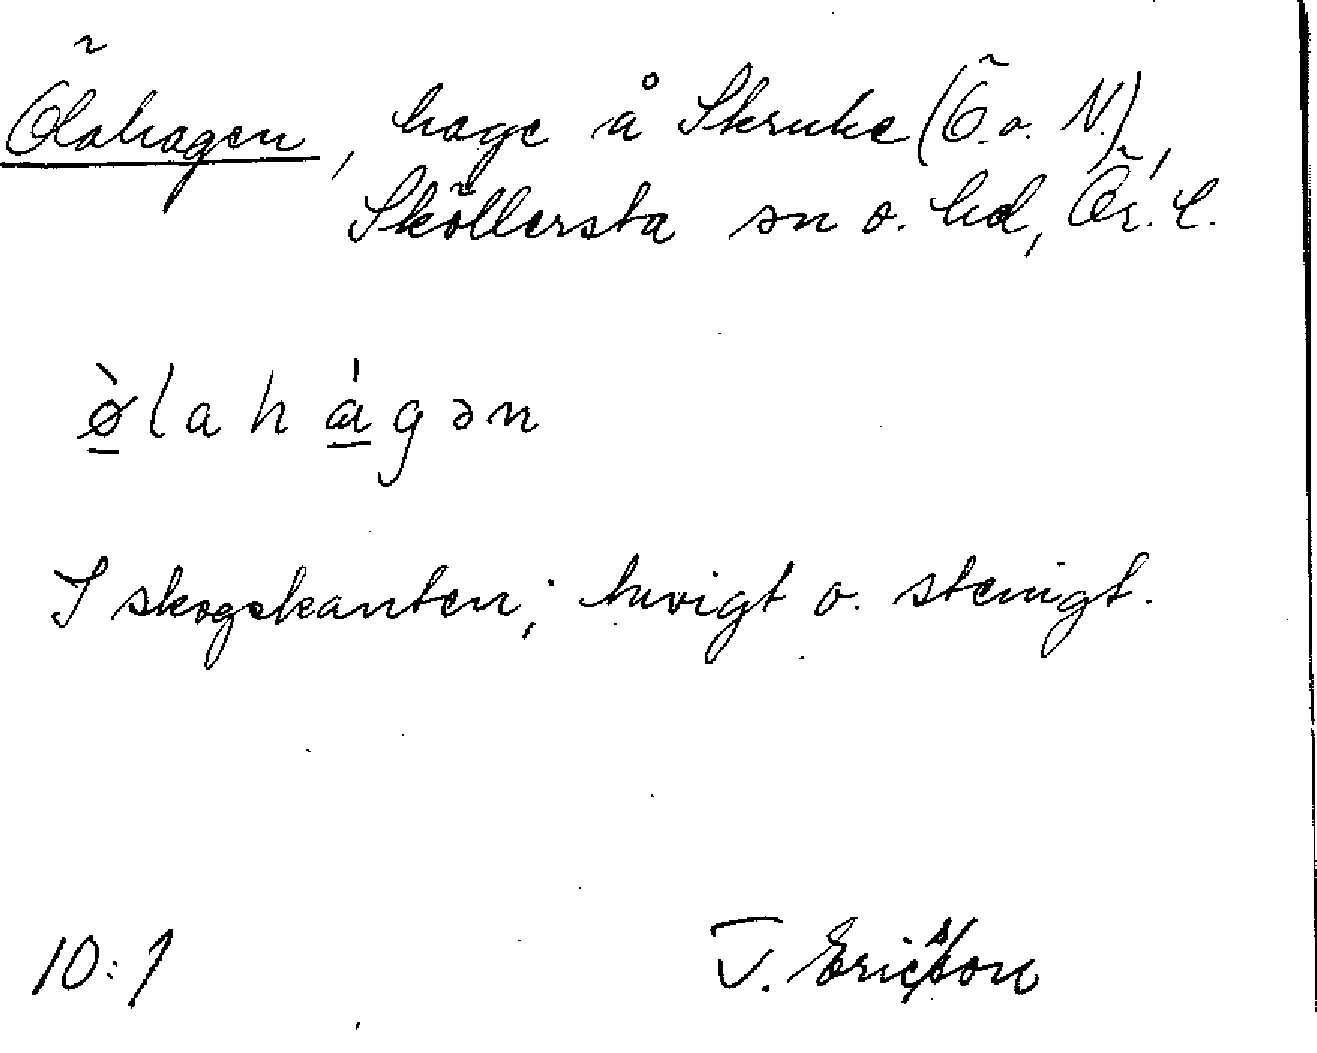 Ölahagen, hage å Skruke (Ö. o. N.),
Sköllersta sn o. hd, Ör. l.
ø̀lahágən
I skogskanten; tuvigt o. stenigt.
10:1
J. Ericsson